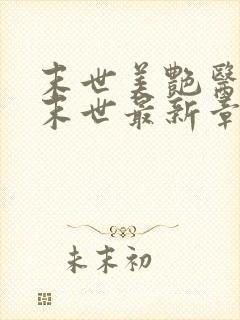 末世美艷醫
末世最新章
未末初